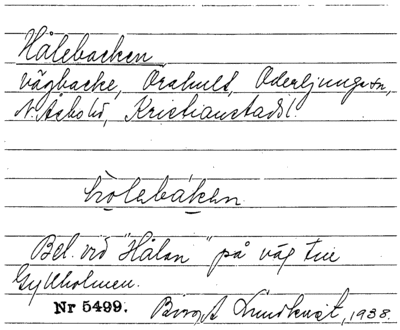 Hålebacken
vägbacke, Örahult, Oderljunga sn,
N. Åsbo hd, Kristianstads l.
hò̲lebàken.
Bel. vid "Hålan" på väg till
Gyllholmen.
Nr 5499. Birgit Lundkvist, 1938.